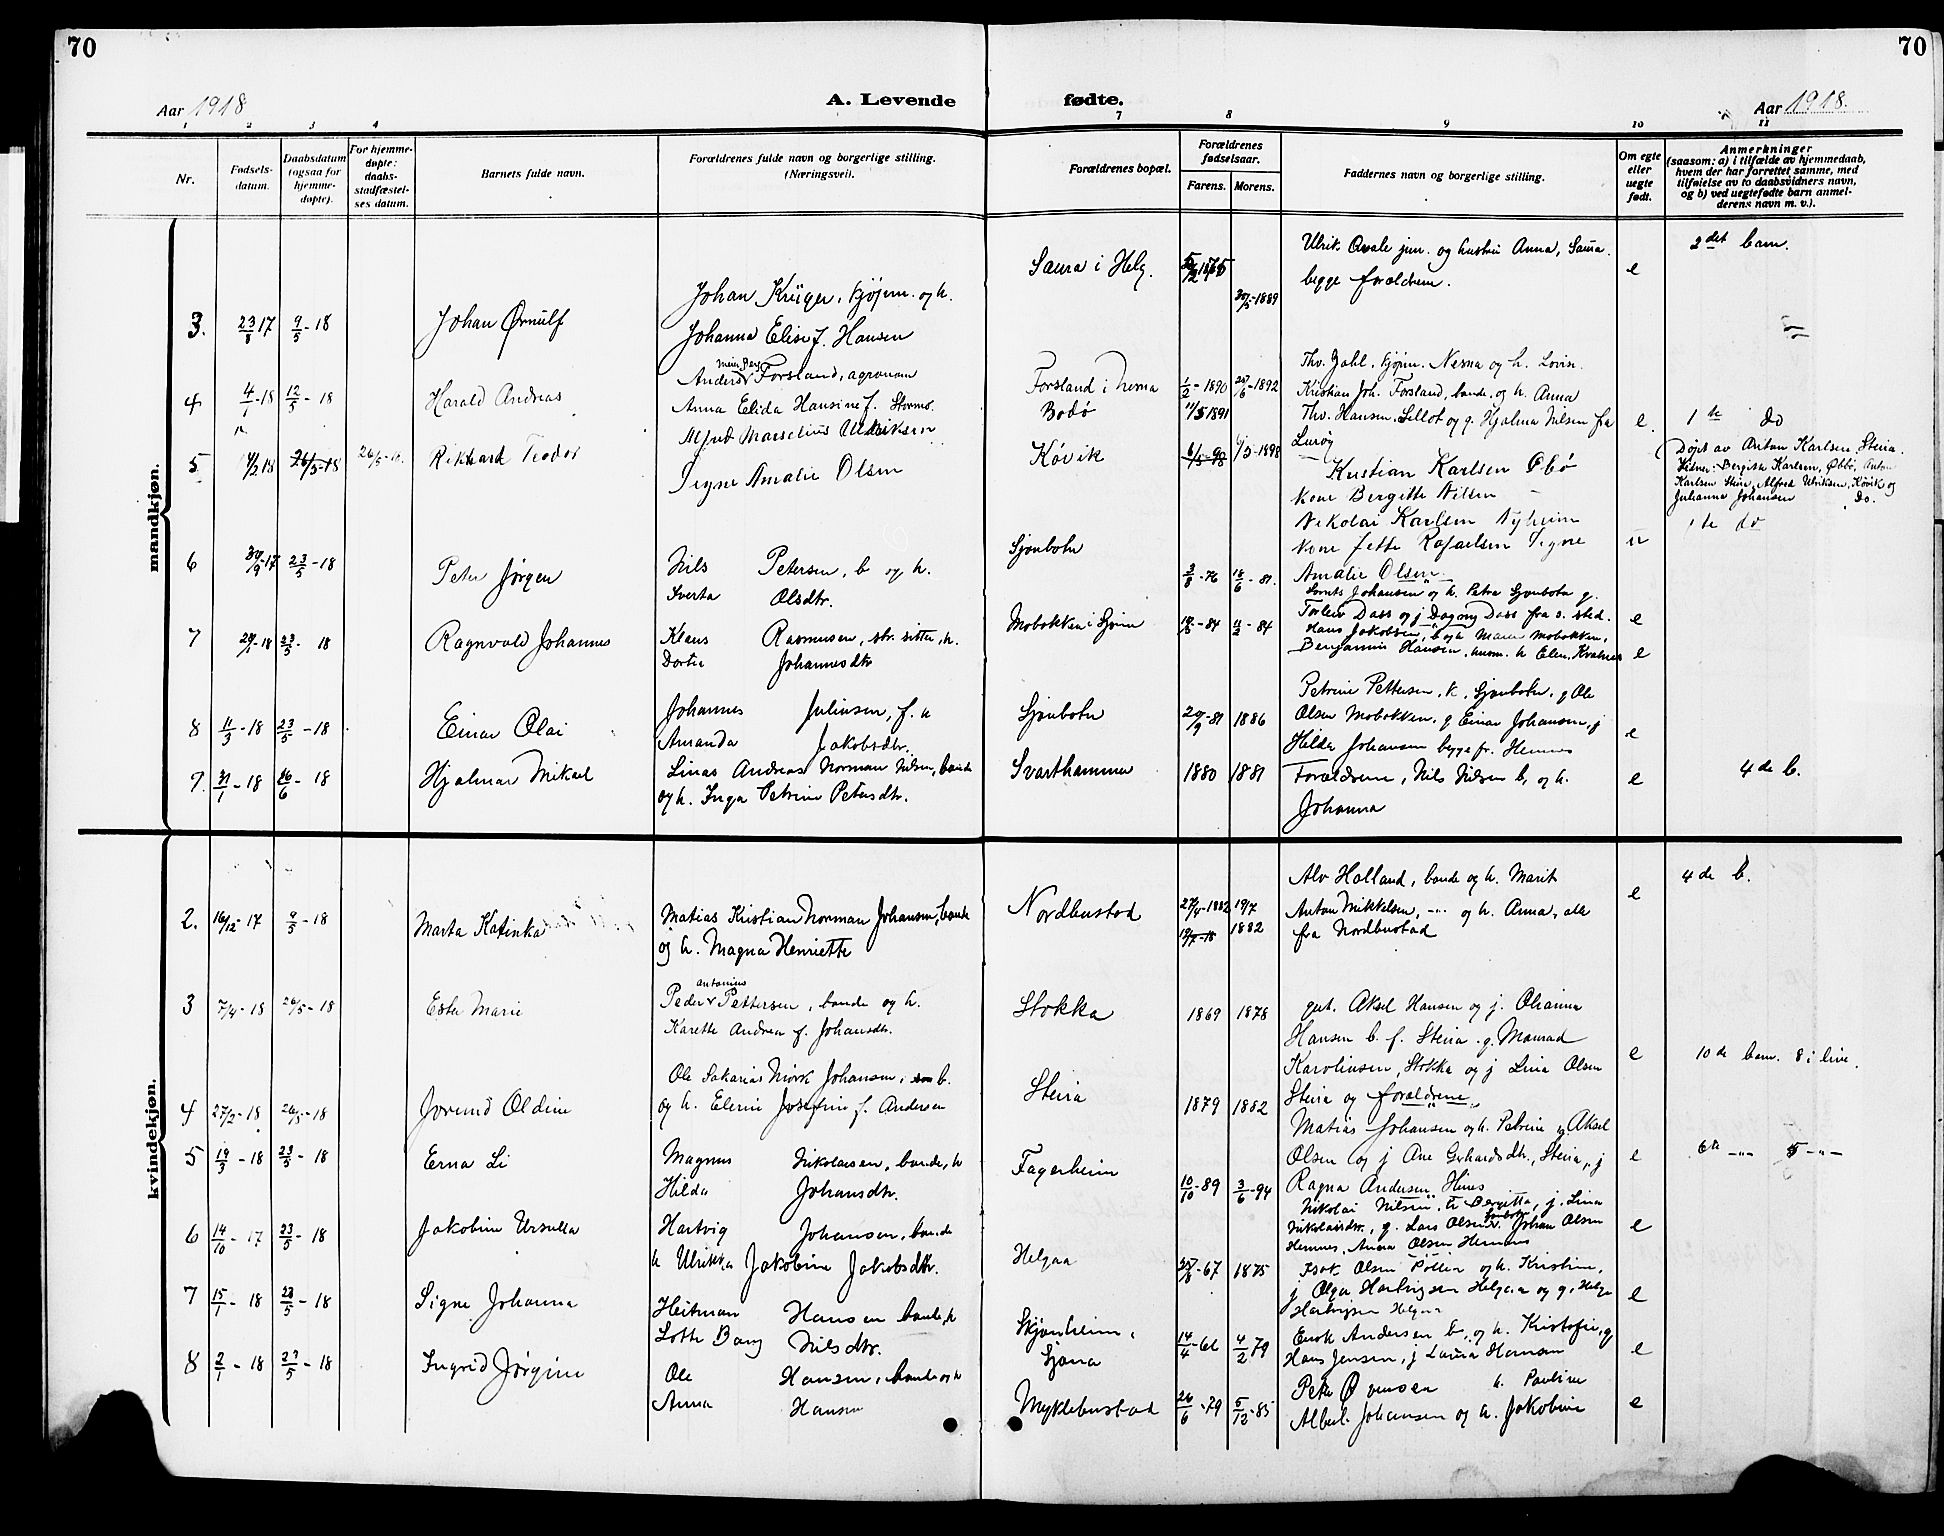 70
70
Aar 1918
A. Levende fødte.
Aar 1918.
1 2 3 4 7 8 9 10 11
Nr.
Fødsels-
datum.
Daabsdatum
(ogsaa for
hjemme-
døpte).
For hjemme-
døpte:
daabs-
stadfæstel-
ses datum.
Barnets fulde navn.
Forældrenes fulde navn og borgerlige stilling.
(Næringsvei).
Forældrenes bopæl.
Forældrenes
fødselsaar.
Farens. Morens.
Faddernes navn og borgerlige stilling.
Om egte
eller
uegte
født.
Anmerkninger
(saasom: a) i tilfælde av hjemmedaab,
hvem der har forrettet samme, med
tilføielse av to daabsvidners navn,
og b) ved uegtefødte barn anmel-
derens navn m. v.).
mandkjøn.
3. 23/8 17 9/5 - 18 Johan Ørnulf
Johan Krüger, kjøpm. og h.
Johanna Elise f. Hansen
Saura i Helg.
30/5-1889
Ulrik Qvale jun. og hustru Anna, Saura.
begge forældrene.
e
2det barn.
4 4/1-18 12/5 - 18 Harald Andreas
Anders Forsland, agronom
Anna Elida Hansine f.
Forsland i Nesna
Bodø
1/2-1890
11/5 1891
Thv. Zahl, kjøpm. Nesna og h.
Kristian Joh. Forsland, bonde, og h. Anna
Thv. Hansen, og g. Hjalmar Nilsen fra
Lurøy
e.
1te do
5 26/5-18 26/5-18 Rikhard Teodor
Alfred Marselius Ulriksen
Signe Amalie Olsen
Køvik
6/5-98 1898
Kristian Karlsen Øbø
Kone Bergitte Nilsen
Nikolai Karlsen Nyheim
Kone Jette Rafaelsen Signe
Amalie Olsen
u
Døpt av Anton Karlsen Steira.
Vidner: Bergitte Karlsen, Øbbø, Anton
Karlsen Steira, Alfred Ulriksen, Køvik og
Julianna Johansen do.
1te do
6 30/9-17 23/5-18 Peter Jørgen
Nils Petersen, b og h.
Sverta Olsdtr.
Sjonbotn
3/8-76 18/6-81.
Johansen og h. Petra Sjonbotn g.
Torleiv Dass og j Dagny Dass fra s. sted.
e
7 23/5- 18 Ragnvald Johannes
Klaus Rasmusen, str. sitter, h.
Dortea Johannesdtr
Mobakken i Sjona
-84 11/2-84
Hans Jakobsen, b og h Maren Mobakken,
Benjamin Hansen, husm. h Elen, Kvalnes
e
8 11/3-18 23/5-18 Einar Olai
Johannes Juliusen, f. h
Amanda Jakobsdtr.
Sjonbotn
29/9-81 1886
Petrine Pettersen, k, Sjonbotn, g Ole
Olsen Mobakken, g Einar Johansen, j
Hilda Johansen begge fr. Hemnes
e
9. 31/1-18 16/6 - 18 Hjalmar Mikael
Linas Andreas Norman Nilsen, bonde
og h. Inga Petrine Petersdtr.
Svarthammar
1880 1881
Forældrene, Nils Nilsen b, og h.
Johanna
e
4de b.
kvindekjøn.
2. 16/12-17 9/5-18 Marta Katinka
Matias Kristian Norman Johansen, bonde
og h. Magna Henriette
Nordbustad
27/4-1882 19/7
19/7-18 1882
Alv Holland, bonde og h. Marit
Anton Mikkelsen, -"- og h. Anna, alle
fra Nordbustad
e
4de b.
3 7/4-18 26/5-18 Ester Marie
antonius
Peder Pettersen, bonde og h.
Karette Andrea f. Johansdtr.
Stokka
1869 1878
gut. Aksel Hansen og j. Olianna
Hansen b. f. Steira. g. Monrad
Karolinsen, Stokka og j Lina Olsen
Steira og forældrene
e
10de barn. 8 i live.
4 27/2-18 26/5-18 Jorund Oldine
Ole Sakarias Mörk Johansen, b.
og h. Elerine Josefine f. Andersen
Steira
1879 1882
Matias Johansen og h. Petrine g Aksel
Olsen og j Ane Gerhardsdtr., Steira, j
Ragna Andersen Hines
e
6te -"- 5 -"-
5 19/3-18 23/5-18 Erna Li
Magnus Nikolaisen, bonde, h
Hilda Johansdtr.
Fagerheim
10/10-89 3/6-94
Nikolai Nilsen, h Bergitta, j. Lina
Nikolaisdtr., g. Lars Olsen Johan Olsen
Hemnes, Anna Olsen Hemnes
e
6 14/10-17 23/5-18 Jakobine Ursulla
Hartvig Johansen, bonde
h Ulrikka Jakobine Jakobsdtr.
Helgaa
-67 1875
Isak Olsen og h. Kristine,
j Olga Hartvigsen Helgaa og g. Helge
Hartvigsen Helgaa
e
7 15/1-18 23/5-18 Signe Johanna
Heitman Hansen bonde, h
Lotte Bang Nilsdtr.
Skjonheim,
Sjona
14/4-66 4/2 79
Enok Andersen b, og h. Kristofie, g
Hans Jensen, j Laura Hansen
e
8 2/1-18 23/5-18 Ingrid Jørgine
Ole Hansen, bonde og h
Anna Hansen
Myklebustad
26/6-79 5/12-85
Peter h. Pauline
Albert Johansen og h. Jakobine
e